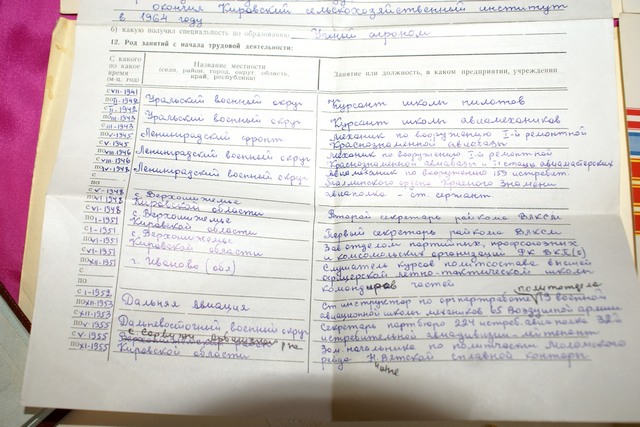 окончил Кировский сельскохозяйственный институт
в 1964 году
б) какую получил специальность по образованию Учёный агроном
12. Род занятий с начала трудовой деятельности:
С какого по какое время (м-ц, год)
Название местности (село, район, город, округ, область, край, республика)
Занятие или должность, в каком предприятии, учреждении
с VII-1941 по II-1942 Уральский военный округ Курсант школы пилотов
с II-1942 по III-1943 Уральский военный округ Курсант школы авиамехаников
с III-1943 по V-1945 Ленинградский фронт Механик по вооружению 1-й ремонтной Краснознаменной авиабазы
с V-1945 по VIII-1946 Ленинградский военный округ Механик по вооружению 1-й ремонтной Краснознаменной авиабазы и авиаматерских
с VIII-1946 по IV-1948 Ленинградский военный округ авиамеханик по вооружению 159 истребит.
с Таллинского ордена Красного Знамени
по авиаполка - ст. сержант
с V-1948 по VI-1948 с. Верхошижемье Кировской области
с VI-1948 по I-1951 с. Верхошижемье Кировской области Второй секретарь райкома ВЛКСМ
с I-1951 по VI-1951 с. Верхошижемье Кировской области Первый секретарь райкома ВЛКСМ
Зав отделом партийных, профсоюзных и комсомольских организаций РК ВКП(б)
с VI-1951 по XII-1951 г. Иваново (обл) Слушатель курсов политсостава высшей офицерской летно-тактической школы
с командиров частей
по политотдела
с I-1952 по XII-1953 Дальняя авиация Ст инструктор по оргпартработе 19 военной авиационной школы механиков 65 Воздушной армии
с XII-1953 по V-1955 Дальневосточный военный округ Секретарь партбюро 224 истреб. авиаполка 32й истребительной авиадивизии - лейтенант
с V-1955 по XI-1955 с. р-на Кировской области Зам. начальника по политчасти Моломского рейда Н.Вятской сплавной конторы